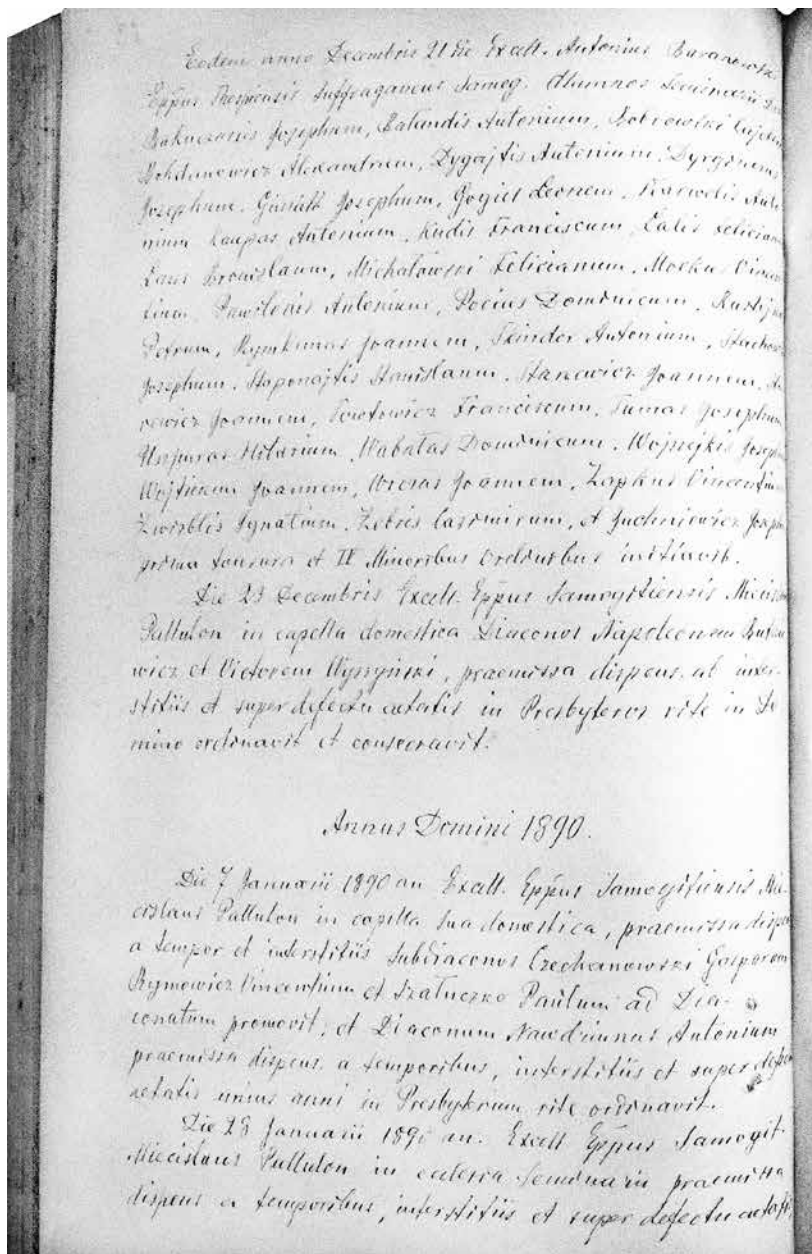 Eodem anno Decembris 21 die Excell. Antonius Baranowski
Eppus Thespiensis Suffraganeus Samog. Alumnos Seminarii
Josephum, Balandis Antonium, Bobrowski
Bohdanowicz Alexandrum, Dygajtis Antonium,
Josephum, Gintiłł Josephum, Gogiel Leonem, Anto
nium Kaupas Antonium, Kudis Franciscum, Lalis Felician
Laus Bronislaum, Michałowski Felicianum, Mockus Vincen
tium, Antonium, Pocius Dominicum,
Petrum, Rymkunas Joannem, Antonium,
Josephum, Staponajtis Stanislaum, Joannem,
rewicz Joannem, Towtowicz Franciscum, Tumas Josephum
Hilarium, Wabałas Dominicum, Joseph
Joannem, Joannem, Łapkus Vincentium
Zwirblis Ignatium, Żebris Casimirum, et Juchniewicz Joseph
prima tonsura et IV Minoribus Ordinibus initiavit.
Die 23 Decembris Excell. Eppus Samogitiensis Miecisl
Pallulon in capella domestica Diaconos Napoleonem
wicz et Victorem Wyszyński, praemissa dispens. ab inter-
stitiis et super defectu aetatis in Presbyteros rite in Do
mino ordinavit et consecravit.
Annus Domini 1890.
Die 7 Januarii 1890 an Excell. Eppus Samogitiensis Mie-
cislaus Pallulon in capella sua domestica, praemissa dispen
a tempor et interstitiis Subdiaconos Czechanowski Gasparem
Rymowicz Vincentium et Paulum ad Dia-
conatum promovit, et Diaconum Antonium
praemissa dispens. a temporibus, interstitiis et super defectu
aetatis unius anni in Presbyterum rite ordinavit.
Die 28 Januarii 1890 an. Excell Eppus Samogit.
Miecislaus Pallulon in ecclesia Seminarii praemissa
dispens a temporibus, interstitiis et super defectu aetatis